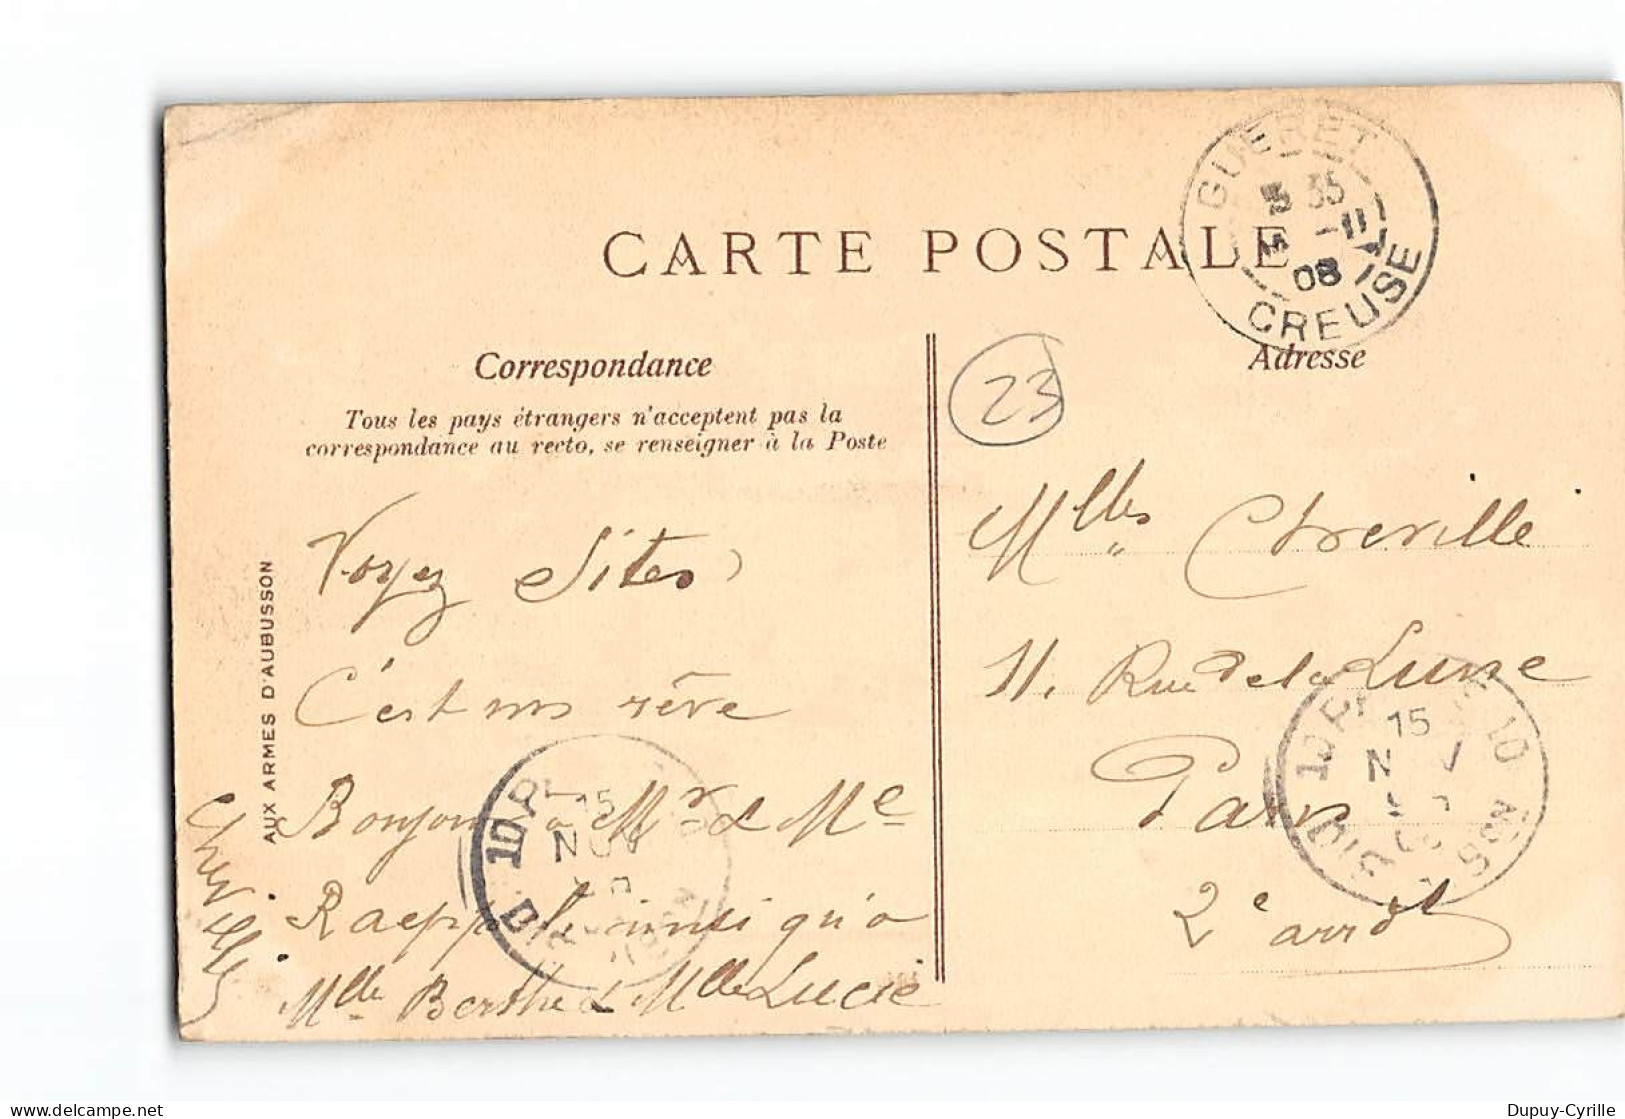 CARTE POSTALE
GUERET
35
-11
08
CREUSE
Correspondance
Adresse
Tous les pays étrangers n'acceptent pas la
correspondance au recto, se renseigner à la Poste
23
AUX ARMES D'AUBUSSON
Voyez Sites
C'est un rêve
Bonjour à Mr & Me
ainsi qu'à
Mlle Berthe & Mlle Lucie
Mlles Chreville
11. Rue de la Lune
Paris
2e arrdt
15
NOV
10
15
10
Dupuy-Cyrille